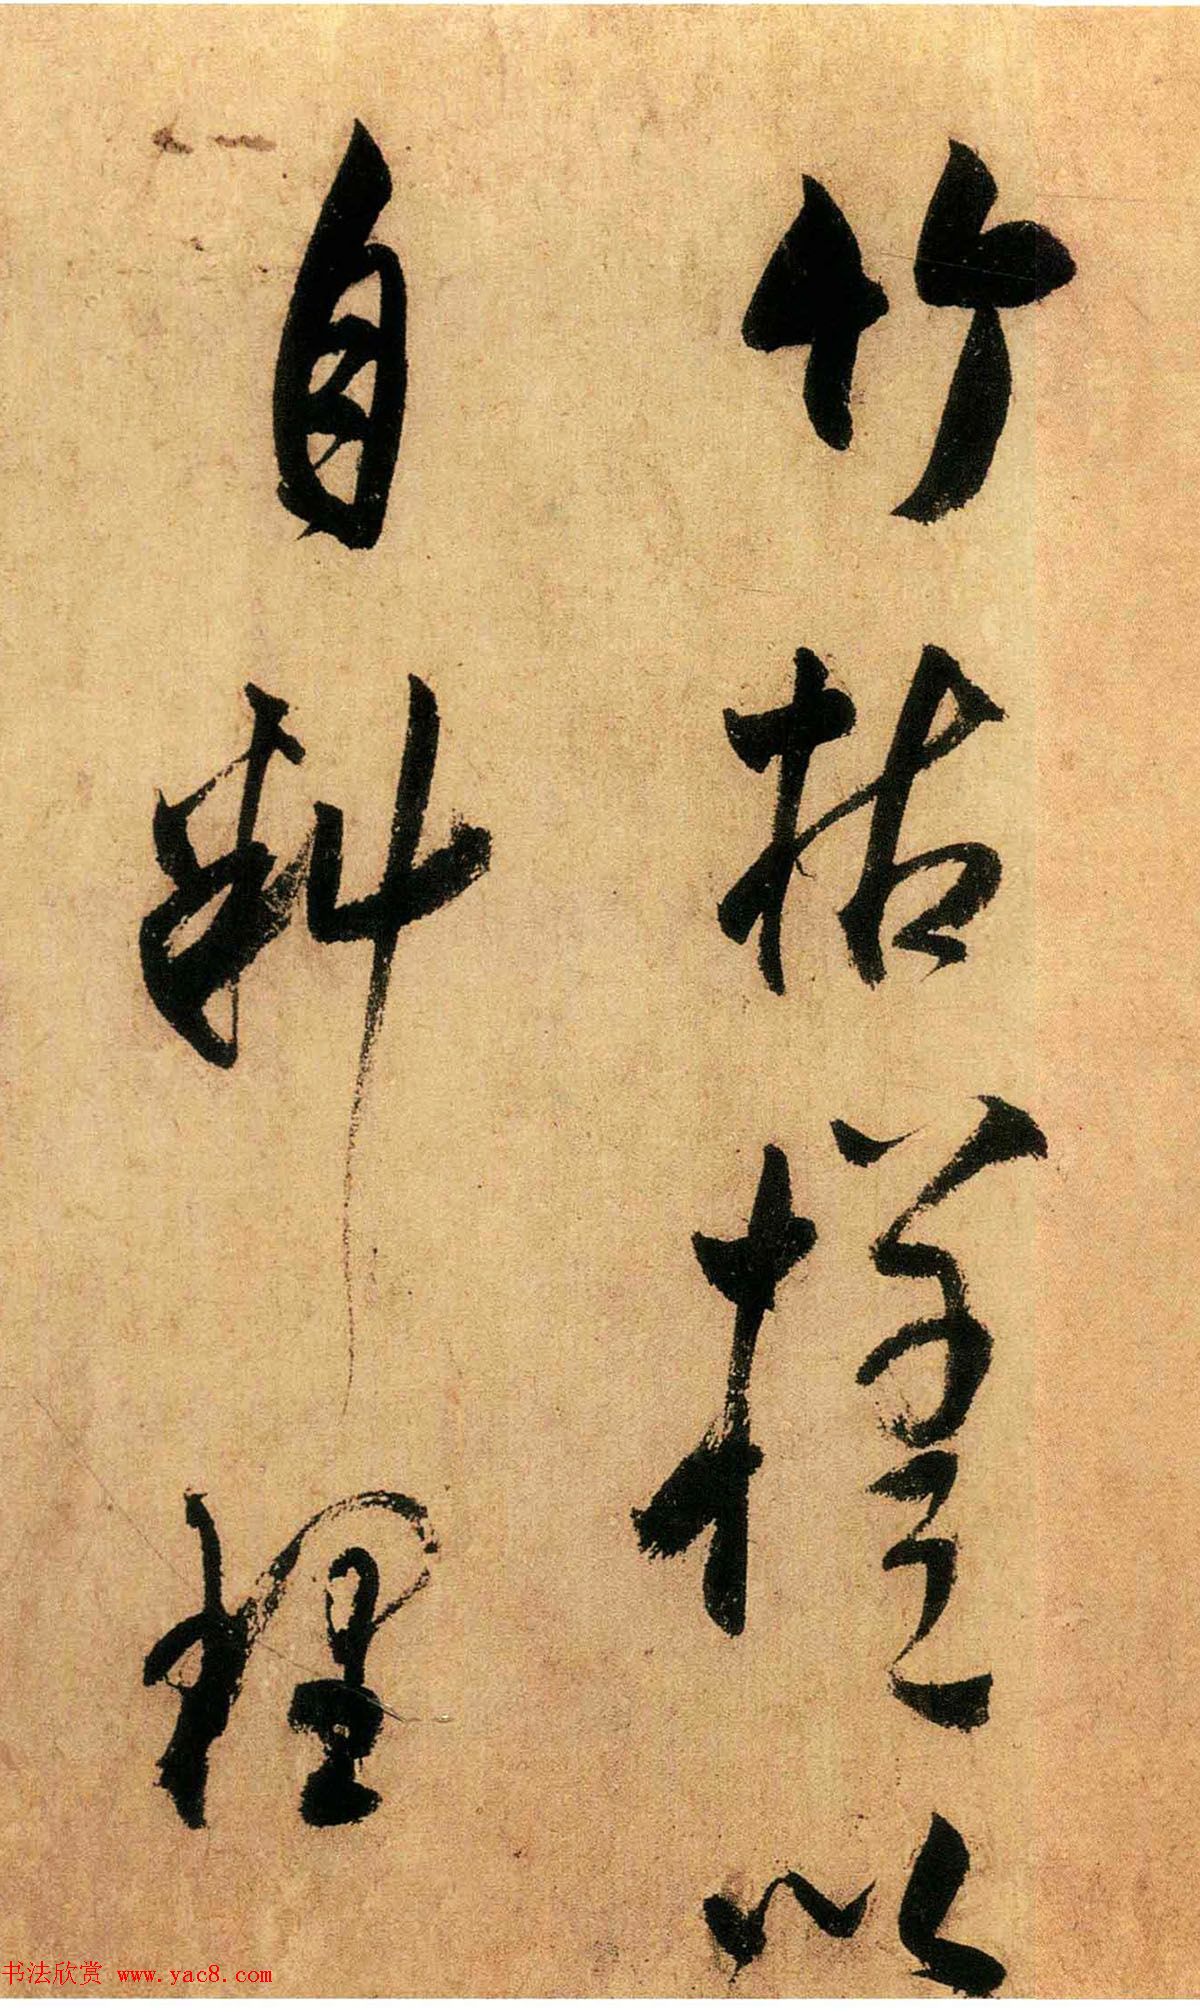 竹枯槎以
自料理
书法欣赏 www.yac8.com